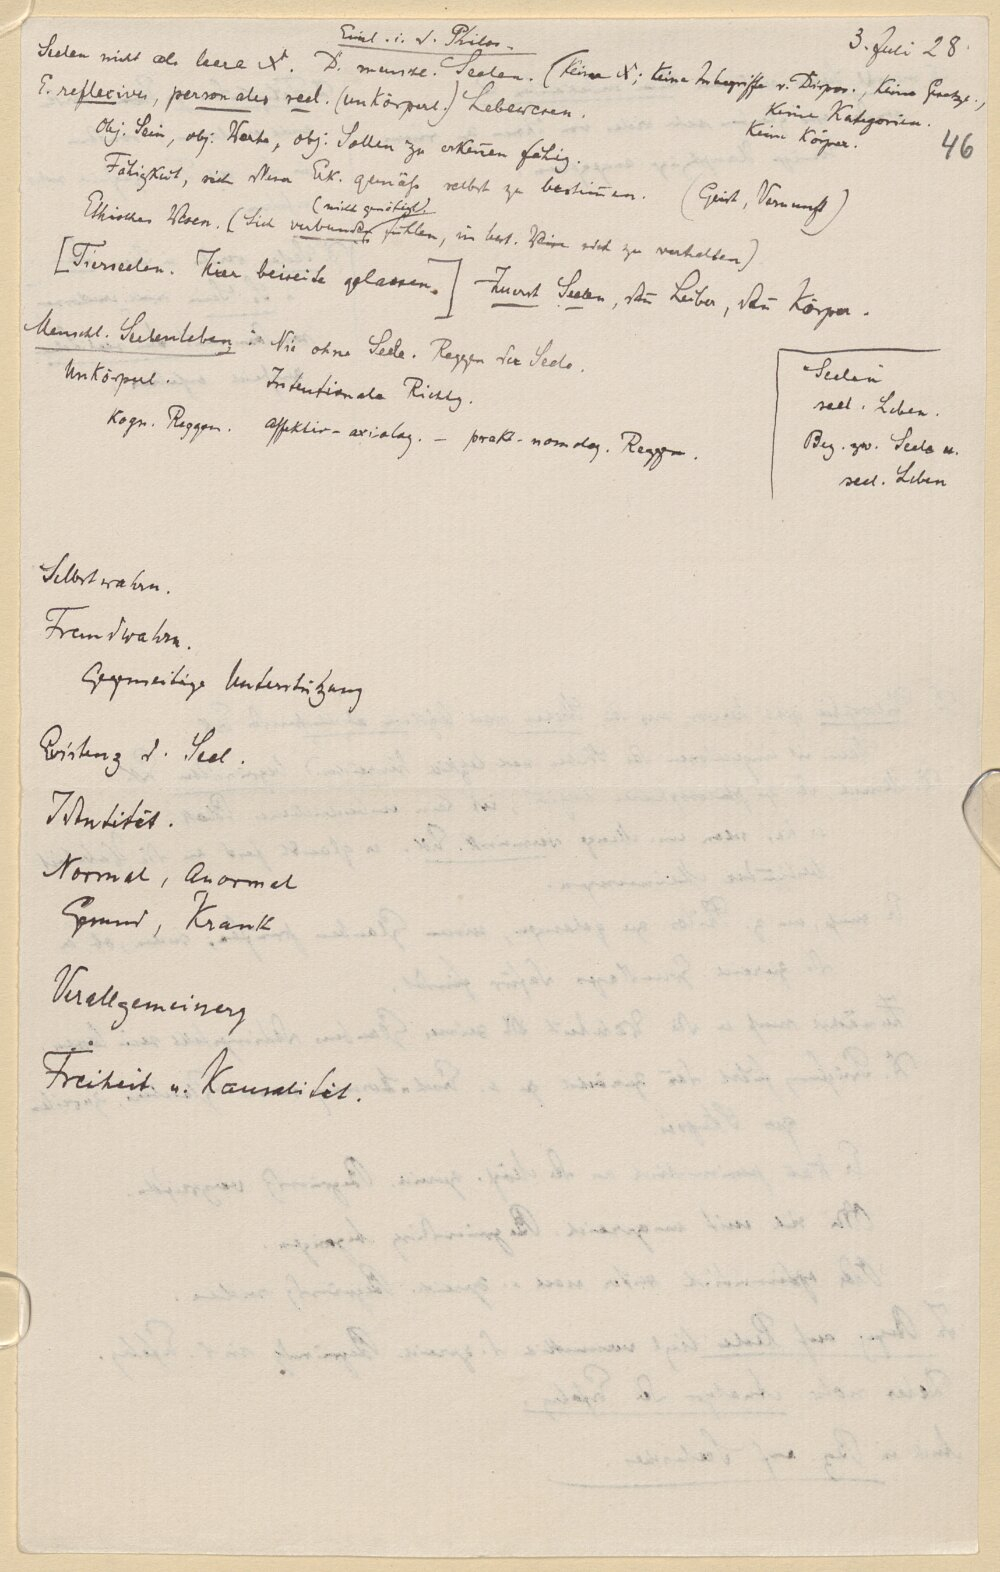 Einl. i. d. Philos.
3. Juli 28.
46
Seelen nicht als leere X. D. menschl. Seelen. (Keine X; keine Inbegriffe v. Dispos., keine Gesetze.,
keine Kategorien.
keine Körper.
E. reflexives, personales seel. (unkörperl.) Lebewesen.
Obj. Sein, obj. Werte, obj. Sollen zu erkennen fähig.
Fähigkeit, sich dieser Erk. gemäß selbst zu bestimmen. (Geist, Vernunft)
(nicht genötigt)
Ethisches Wesen. (Sich verbunden fühlen, in best. Weise sich zu verhalten)
[Tierseelen. Hier beiseite gelassen.] Zuerst Seelen, dann Leiber, dann Körper.
Menschl. Seelenleben: Nie ohne Seele. Reggen der Seele.
Unkörperl. Intentionale Richtg.
Kogn. Reggen. affektiv-axiolog. – prakt-nomolog. Reggen.
Seelen
seel. Leben.
Bez. zw. Seele u.
seel. Leben
Selbstwahrn.
Fremdwahrn.
Gegenseitige Unterstützung
Existenz d. Seel.
Identität.
Normal, Anormal
Gesund, Krank
Verallgemeinerg
Freiheit u. Kausalität.